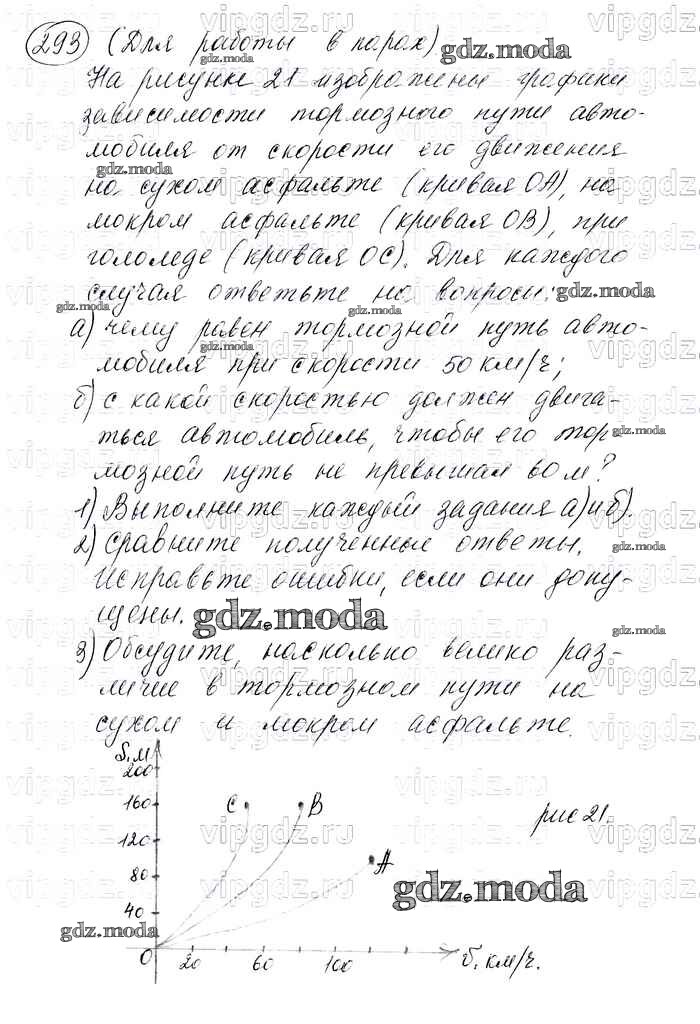 293 (Для работы в парах) gdz.moda
На рисунке 21 изображены графики
зависимости тормозного пути авто-
мобиля от скорости его движения
на сухом асфальте (кривая ОА), на
мокром асфальте (кривая ОВ), при
гололеде (кривая ОС). Для каждого
случая ответьте на вопросы: gdz.moda
а) чему равен тормозной путь авто-
мобиля при скорости 50 км/ч;
б) с какой скоростью должен двига-
ться автомобиль, чтобы его тор
мозной путь не превышал 80 м?
1) Выполните каждый задания а) и б).
2) сравните полученные ответы.
Исправьте ошибки, если они допу-
щены. gdz.moda
3) Обсудите, насколько велико раз-
личие в тормозном пути на
сухом и мокром асфальте.
S, м
200
160 С В рис 21.
120
80 А
gdz.moda
40
gdz.moda
0 20 60 100 км/ч.